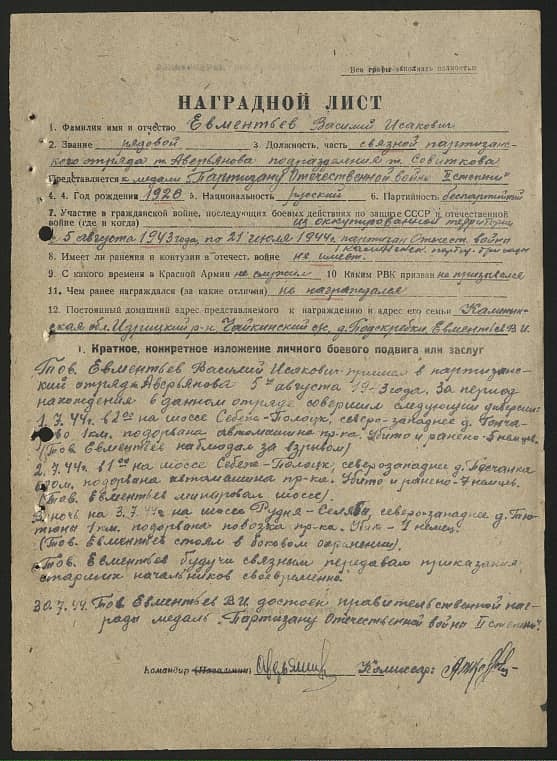 Все графы заполнять полностью
НАГРАДНОЙ ЛИСТ
1. Фамилия имя и отчество Евментьев Василий Исакович
2. Звание рядовой 3. Должность, часть связной партизан-
ского отряда т. Аверьянова подразделения т.
Представляется к медали „Партизану Отечественной войны II степени"
4. 4. Год рождения 1928 5. Национальность русский 6. Партийность беспартийный
7. Участие в гражданской войне, последующих боевых действиях по защите СССР и отечественной
войне (где и когда) на оккупированной территории
с 5 августа 1943 года, по 21 июля 1944г. партизан Отечест. войны
Калининск. парт. бригады
8. Имеет ли ранения и контузии в отечест. войне не имеет.
9. С какого времени в Красной Армии не служит 10 Каким РВК призван не призывался
11. Чем ранее награждался (за какие отличия) не награждался
12. Постоянный домашний адрес представляемого к награждению и адрес его семьи Калинин-
ская обл. Идрицкий р-н, Чайкинский с/с, д. Подскребки, Евментьев В.И.
1. Краткое, конкретное изложение личного боевого подвига или заслуг
Тов. Евментьев Василий Исакович принят в партизанс-
кий отряд т. Аверьянова 5го августа 1943 года. За период
нахождения в данном отряде совершил следующии диверсии:
1.7.44г. на шоссе Себеж-Полоцк, северо-западнее д.
1км. подорвана автомашина пр-ка. Убито и ранено-5 немцев.
(Тов. Евментьев наблюдал за взрывом)
2.7.44г. на шоссе Себеж-Полоцк, северозападнее д.
подорвана автомашина пр-ка. Убито и ранено-7 немцев.
(Тов. Евментьев минировал шоссе).
В ночь на 3.7.44г на шоссе Рудня-Селявы, северо-западнее д. Тю-
тюны 1 км. подорвана повозка пр-ка. 1 немец.
(Тов. Евментьев стоял в боковом охранении).
Тов. Евментьев будучи связным передавал приказания
старших начальников своевременно.
30.7.44. Тов. Евментьев В.И. достоен правительственной наг-
рады медаль „Партизану Отечественной войны II степени".
Командир (Начальник) Комиссар: